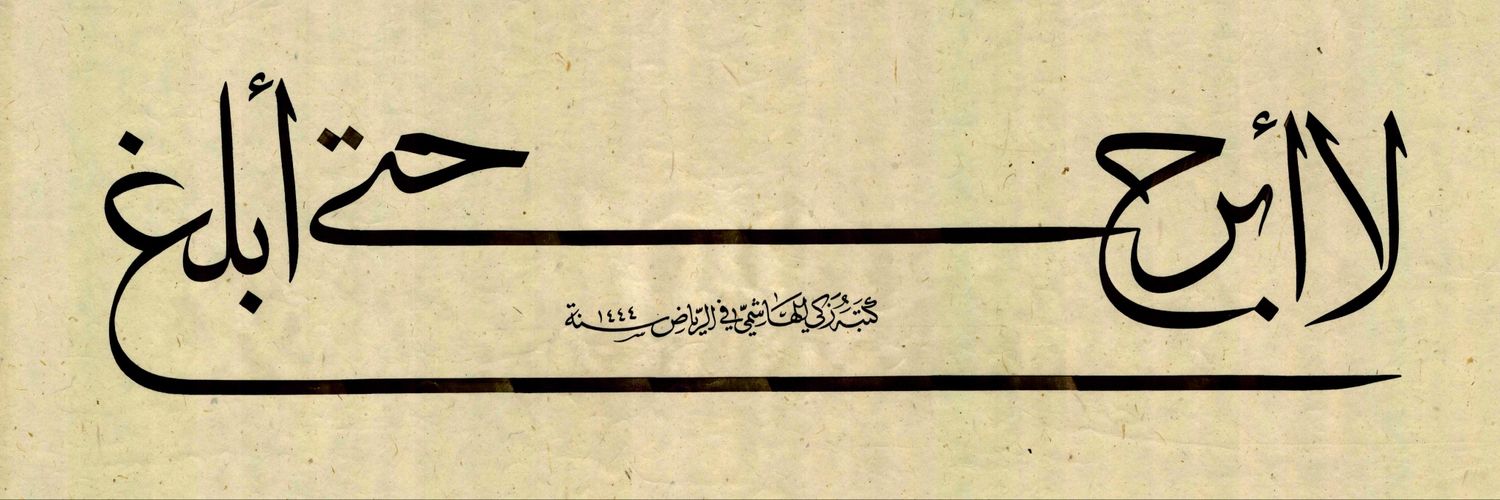 لا أبرح حتى أبلغ
كتبه زكي الهاشمي في الرياض سنة ١٤٤٤